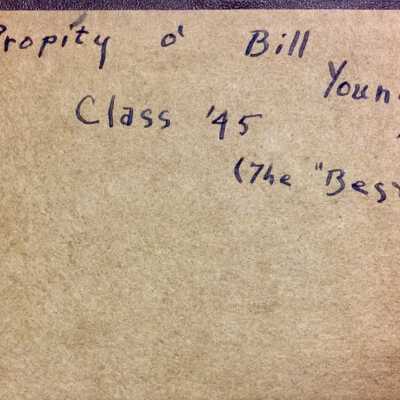 Propity o' Bill
Youn
Class '45
(The "Best